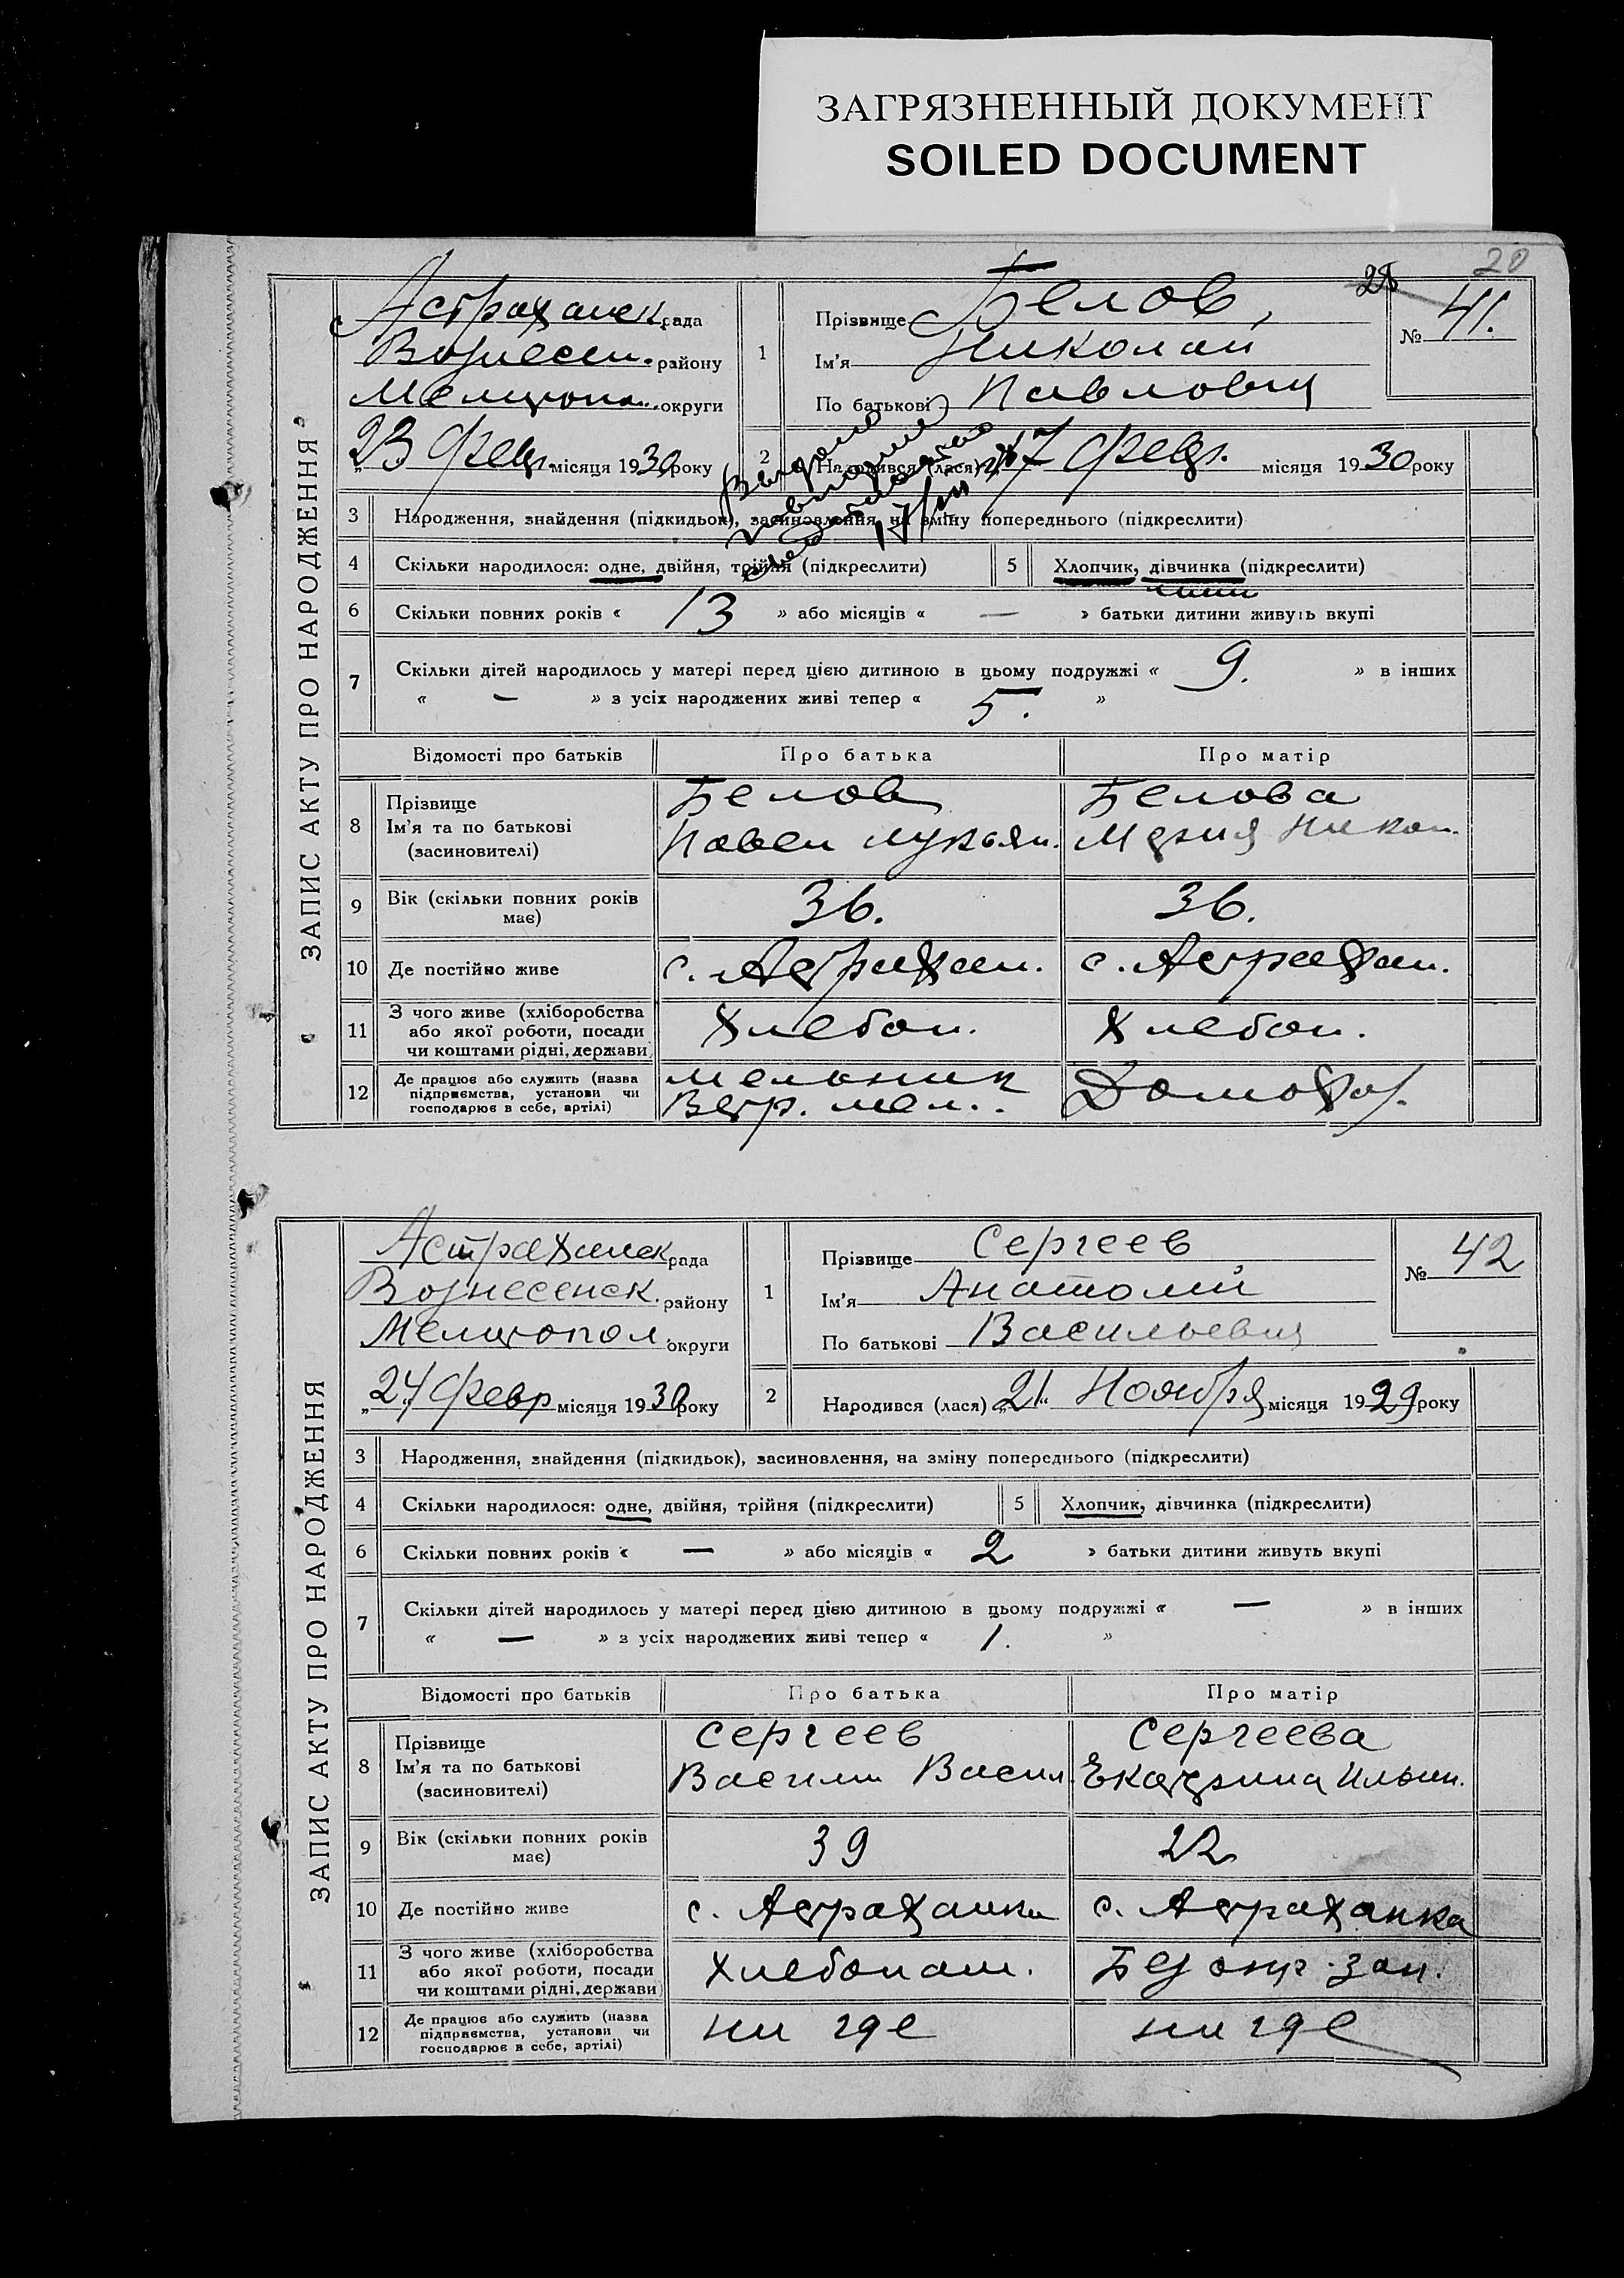 ЗАГРЯЗНЕННЫЙ ДОКУМЕНТ
SOILED DOCUMENT
20
25
ЗАПИС АКТУ ПРО НАРОДЖЕННЯ
Астраханск. рада
Вознесен. району
Мелитоп. округи
„23 февр. місяця 1930 року
1
Прізвище Белов,
Ім'я Николай
По батькові Павлович
№ 41.
2 Народився (лася) 17 февр. місяця 1930 року
Выдано
повторное
17/III
3 Народження, знайдення (підкидьок), засиновлення, на зміну попереднього (підкреслити)
4 Скільки народилося: одне, двійня, трійня (підкреслити)
5 Хлопчик, дівчинка (підкреслити)
6 Скільки повних років « 13 » або місяців « — » батьки дитини живуть вкупі
7 Скільки дітей народилось у матері перед цією дитиною в цьому подружжі « 9. » в інших
« — » з усіх народжених живі тепер « 5. »
Відомості про батьків Про батька Про матір
8 Прізвище
Ім'я та по батькові
(засиновителі)
Белов
Павел Лукьян.
Белова
Мария Никол.
9 Вік (скільки повних років
має)
36. 36.
10 Де постійно живе с. Астрахан. с. Астрахан.
11 З чого живе (хліборобства
або якої роботи, посади
чи коштами рідні, держави
Хлебоп. Хлебоп.
12 Де працює або служить (назва
підприємства, установи чи
господарює в себе, артілі)
мельник
Ветр. мел.
Домохоз.
ЗАПИС АКТУ ПРО НАРОДЖЕННЯ
Астраханск рада
Вознесенск. району
Мелитопол. округи
„24 февр місяця 1930 року
1
Прізвище Сергеев
Ім'я Анатолий
По батькові Васильевич
№ 42
2 Народився (лася) „21“ Ноября місяця 1929 року
3 Народження, знайдення (підкидьок), засиновлення, на зміну попереднього (підкреслити)
4 Скільки народилося: одне, двійня, трійня (підкреслити)
5 Хлопчик, дівчинка (підкреслити)
6 Скільки повних років « — » або місяців « 2 » батьки дитини живуть вкупі
7 Скільки дітей народилось у матері перед цією дитиною в цьому подружжі « — » в інших
« — » з усіх народжених живі тепер « 1. »
Відомості про батьків Про батька Про матір
8 Прізвище
Ім'я та по батькові
(засиновителі)
Сергеев
Василий Васил.
Сергеева
Екатерина Ильин.
9 Вік (скільки повних років
має)
39 22
10 Де постійно живе с. Астраханка с. Астраханка
11 З чого живе (хліборобства
або якої роботи, посади
чи коштами рідні, держави)
Хлебопаш.
12 Де працює або служить (назва
підприємства, установи чи
господарює в себе, артілі)
ни где ни где